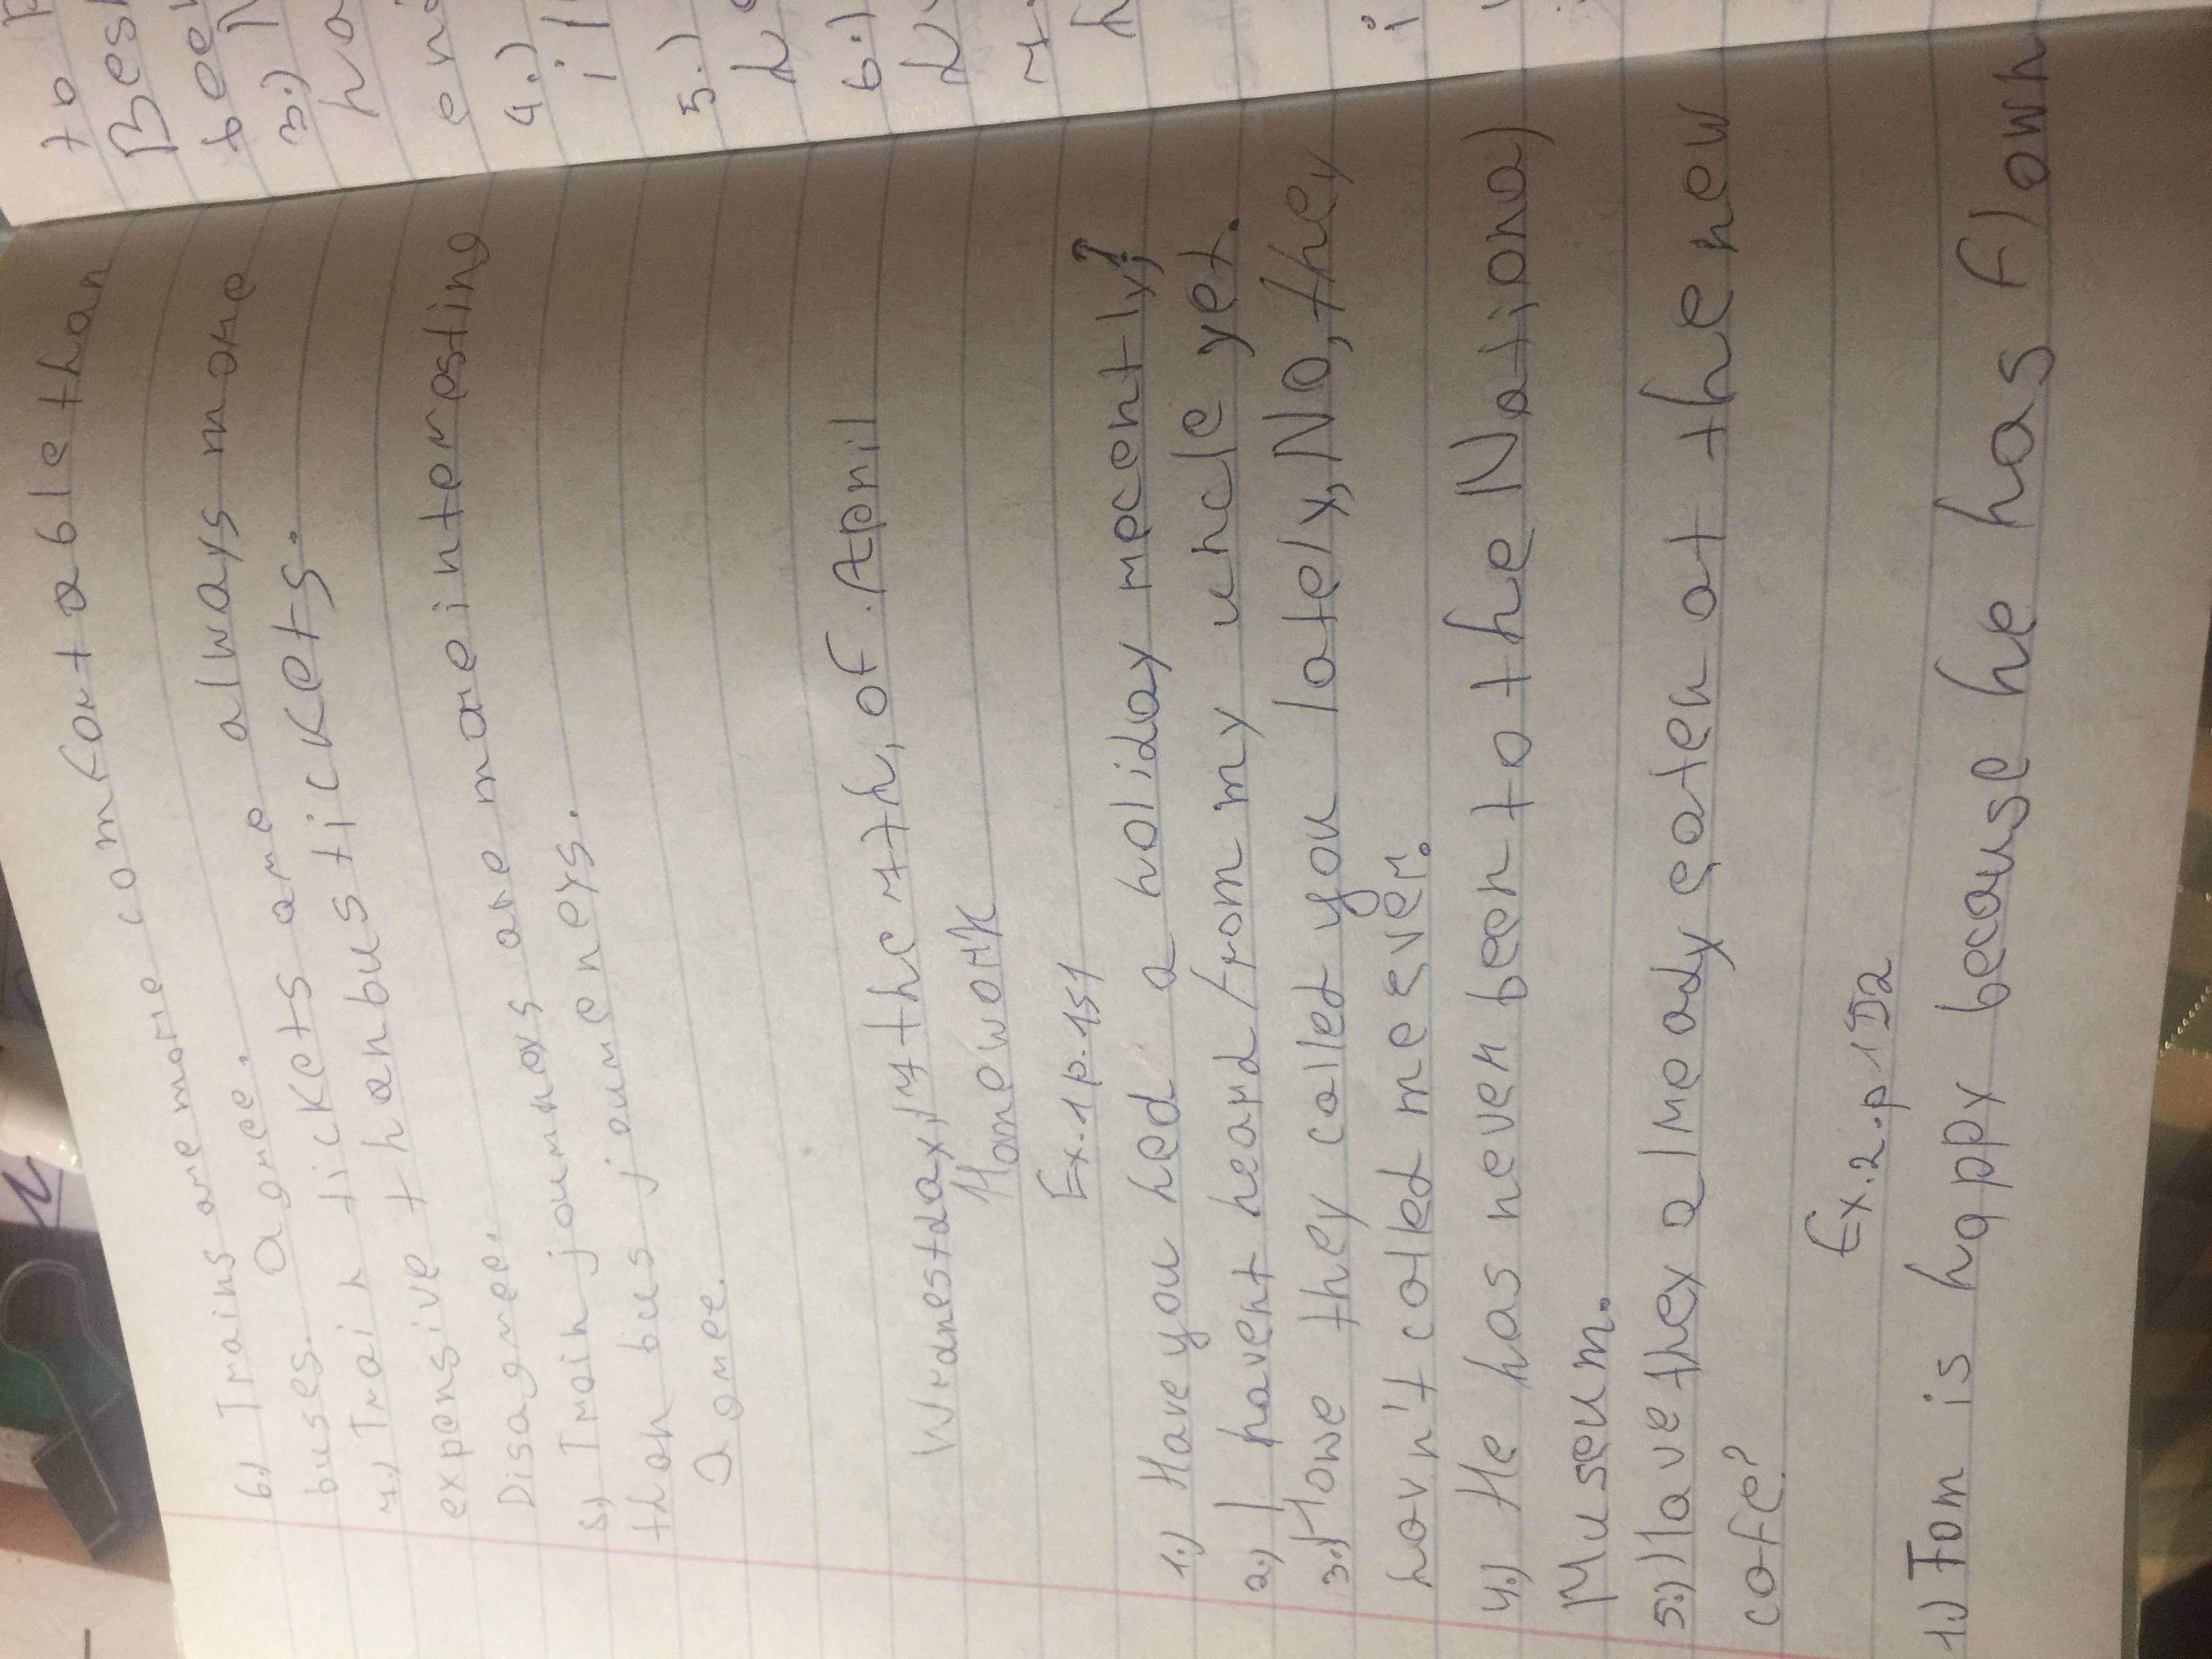 6.) Trains are more comfortable than
buses. Agree.
7.) Train tickets are always more
expensive than bus tickets.
Disagree.
8.) Train journeys are more interesting
than bus journeys.
Agree.
the 7th, of April
Homework
Ex.1 p.151
1.) Have you hed a holiday recently?
2.) I havent heard from my uncle yet.
3.) they called you lately, No, they
havn't colled me ever.
4.) He has never been to the National
Museum.
5.) Have they already eaten at the new
cafe?
Ex.2.p 152
1.) Tom is happy because he has flown
to
Bes
bee
3.)
ha
4.)
5.)
6.)